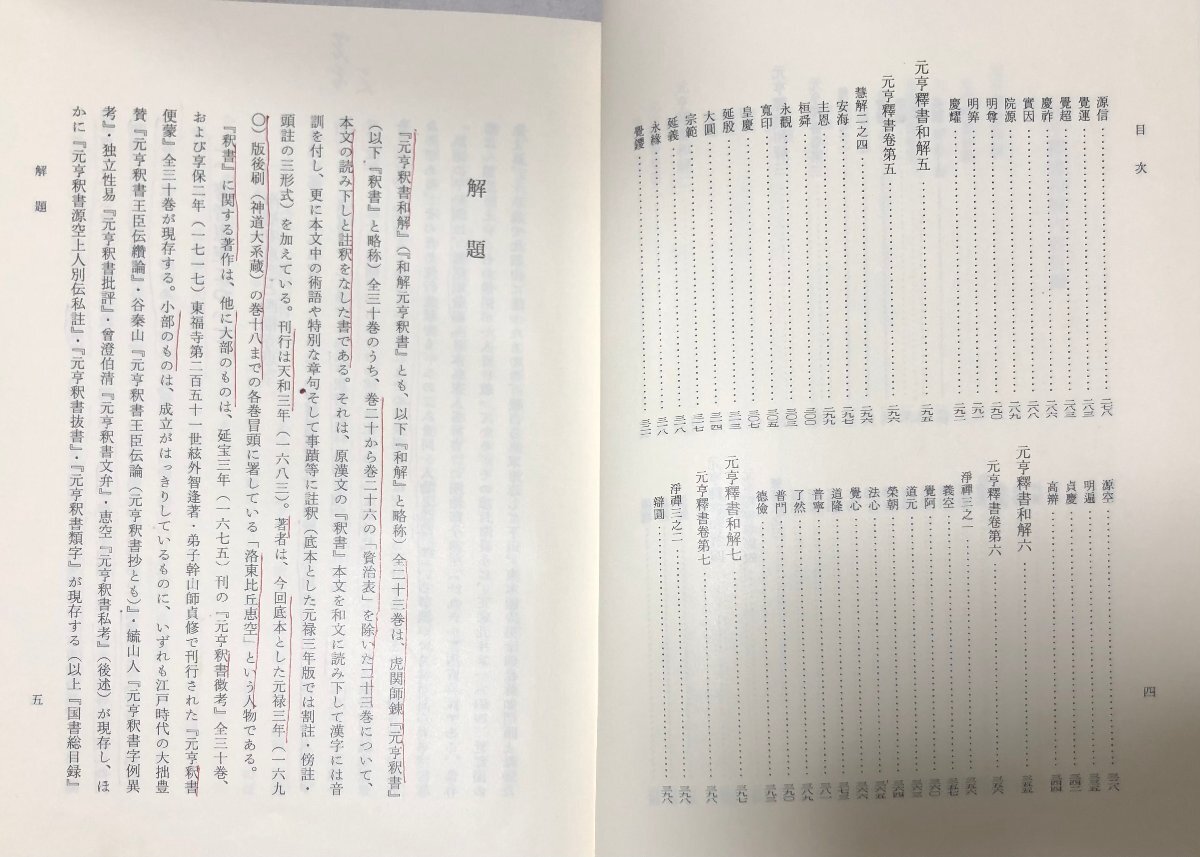 目次
源信
覺運 二八三
覺超 二八三
慶祚 二八六
實因 二八八
院源 二八九
明尊 二九〇
明筭 二九一
慶耀 二九二
元亨釋書和解五 二九五
元亨釋書卷第五 二九六
慧解二之四 二九六
安海 二九七
主恩 二九九
桓舜 三〇〇
永觀 三〇三
寬印 三〇五
皇慶 三〇七
延殷 三一三
大圓 三一四
宗範 三一七
延義 三一八
永緣 三一八
覺鑁 三二一
源空 三二八
明遍 三三五
貞慶 三四二
高辨 三四四
元亨釋書和解六 三五五
元亨釋書卷第六 三五六
淨禪三之一 三五六
義空 三五七
覺阿 三六〇
道元 三六三
榮朝 三六四
法心 三六五
覺心 三六六
道隆 三七三
普寧 三八一
了然 三八九
普門 三九〇
德儉 三九三
元亨釋書和解七 三九七
元亨釋書卷第七 三九八
淨禪三之二 三九八
辯圓 三九八
四
解題
『元亨釈書和解』(『和解元亨釈書』とも、以下『和解』と略称)全二十三巻は、虎関師錬『元亨釈書』
(以下『釈書』と略称)全三十巻のうち、巻二十から巻二十六の「資治表」を除いた二十三巻について、
本文の読み下しと註釈をなした書である。それは、原漢文の『釈書』本文を和文に読み下して漢字には音
訓を付し、更に本文中の術語や特別な章句そして事蹟等に註釈(底本とした元禄三年版では割註・傍註・
頭註の三形式)を加えている。刊行は天和三年(一六八三)。著者は、今回底本とした元禄三年(一六九
〇)版後刷(神道大系蔵)の巻十八までの各巻冒頭に署している「洛東比丘恵空」という人物である。
『釈書』に関する著作は、他に大部のものは、延宝三年(一六七五)刊の『元亨釈書微考』全三十巻、
および享保二年(一七一七)東福寺第二百五十一世絃外智逢著・弟子幹山師貞修で刊行された『元亨釈書
便蒙』全三十巻が現存する。小部のものは、成立がはっきりしているものに、いずれも江戸時代の大拙豊
賛『元亨釈書王臣伝纘論』・谷秦山『元亨釈書王臣伝論(元亨釈書抄とも)』・蘢山人『元亨釈書字例異
考』・独立性易『元亨釈書批評』・曾澄伯清『元亨釈書文弁』・恵空『元亨釈書私考』(後述)が現存し、ほ
かに『元亨釈書源空上人別伝私註』・『元亨釈書抜書』・『元亨釈書類字』が現存する(以上『国書総目録』
解題
五